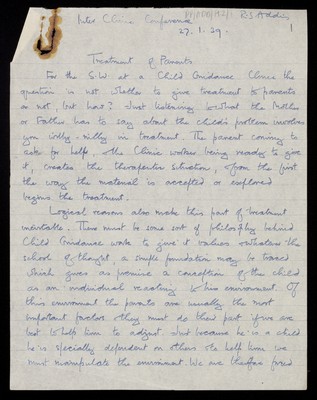 Inter Clinic Conference
R.S. Addis
27.1.39.
1
Treatment of Parents
For the S.W. at a Child Guidance Clinic the
question is not whether to give treatment to parents
or not, but how? Just listening to what the Mother
or Father has to say about the child's problem involves
you willy-nilly in treatment. The parent coming to
ask for help, the Clinic worker being ready to give
it, creates the therapeutic situation, & from the first
the way the material is accepted or explored
begins the treatment.
Logical reasons also make this part of treatment
inevitable. There must be some sort of philosophy behind
Child Guidance work to give it values & whatever the
school of thought, a simple foundation may be traced
which gives as premise a conception of the child
as an individual reacting to his environment. Of
this environment the parents are usually the most
important factors & they must do their part if we are
to help him to adjust. Just because he is a child
he is specially dependent on others & to help him we
must manipulate the environment. We are therefore forced